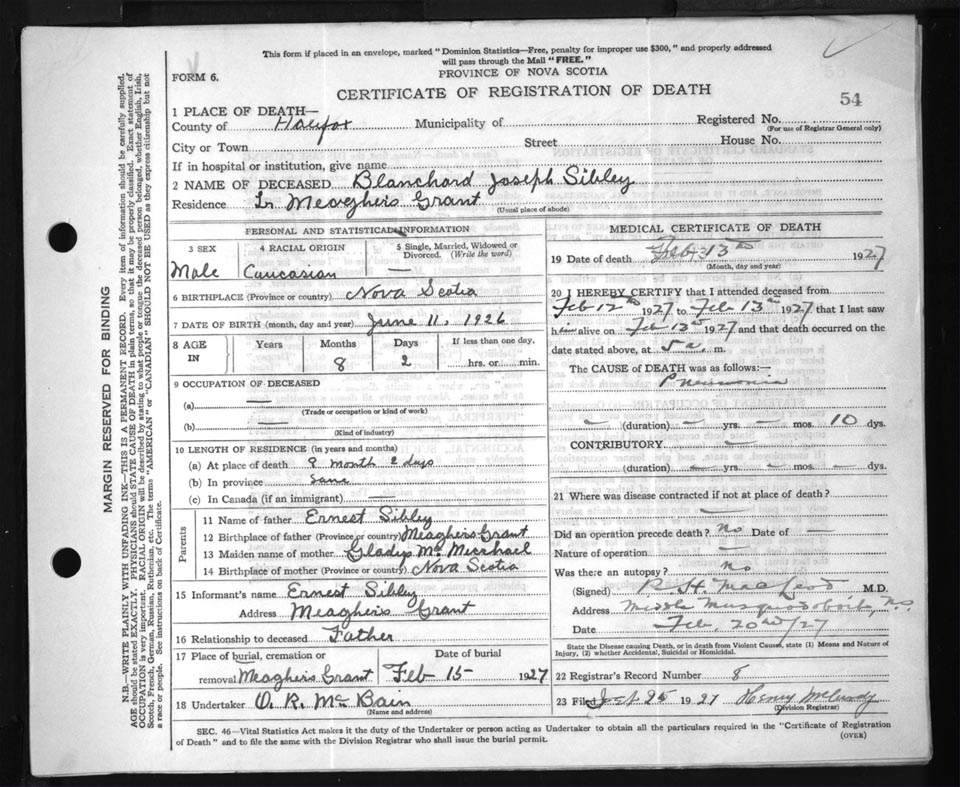 This form if placed in an envelope, marked "Dominion Statistics—Free, penalty for improper use $300," and properly addressed
will pass through the Mail "FREE."
FORM 6.
PROVINCE OF NOVA SCOTIA
CERTIFICATE OF REGISTRATION OF DEATH
54
1 PLACE OF DEATH—
County of Halifax Municipality of Registered No.
(For use of Registrar General only)
City or Town Street House No.
If in hospital or institution, give name
2 NAME OF DECEASED Blanchard Joseph Sibley
Residence Meaghers Grant
(Usual place of abode)
PERSONAL AND STATISTICAL INFORMATION
3 SEX 4 RACIAL ORIGIN 5 Single, Married, Widowed or
Divorced. (Write the word)
Male Caucasian —
6 BIRTHPLACE (Province or country) Nova Scotia
7 DATE OF BIRTH (month, day and year) June 11, 1926
8 AGE IN Years Months Days If less than one day,
8 2 hrs. or min.
9 OCCUPATION OF DECEASED
(a) —
(Trade or occupation or kind of work)
(b) —
(Kind of industry)
10 LENGTH OF RESIDENCE (in years and months)
(a) At place of death month days
(b) In province Same
(c) In Canada (if an immigrant) —
Parents
11 Name of father Ernest Sibley
12 Birthplace of father (Province or country) Meaghers Grant
13 Maiden name of mother Gladys Mc
14 Birthplace of mother (Province or country) Nova Scotia
15 Informant's name Ernest Sibley
Address Meaghers Grant
16 Relationship to deceased Father
17 Place of burial, cremation or Date of burial
removal Meaghers Grant Feb 15 1927
18 Undertaker O. R. McBain
(Name and address)
MEDICAL CERTIFICATE OF DEATH
19 Date of death Feb 13th 1927
(Month, day and year)
20 I HEREBY CERTIFY that I attended deceased from
Feb 12th 1927 to Feb 13th 1927 that I last saw
him alive on Feb 13th 1927 and that death occurred on the
date stated above, at 5 a. m.
The CAUSE of DEATH was as follows:—
Pneumonia
— (duration) — yrs. — mos. 10 dys.
CONTRIBUTORY —
(duration) — yrs. — mos. — dys.
21 Where was disease contracted if not at place of death?
—
Did an operation precede death? No Date of —
Nature of operation —
Was there an autopsy? No
(Signed) R. H. MacLeod M.D.
Address Middle Musquodoboit, N.S.
Date Feb. 20 /27
State the Disease causing Death, or in death from Violent Causes, state (1) Means and Nature of
Injury, (2) whether Accidental, Suicidal or Homicidal.
22 Registrar's Record Number 8
23 Filed 25 1927 Henry McCurdy
(Division Registrar)
SEC. 46—Vital Statistics Act makes it the duty of the Undertaker or person acting as Undertaker to obtain all the particulars required in the "Certificate of Registration
of Death" and to file the same with the Division Registrar who shall issue the burial permit.
(OVER)
MARGIN RESERVED FOR BINDING
N.B.—WRITE PLAINLY WITH UNFADING INK—THIS IS A PERMANENT RECORD. Every item of information should be carefully supplied.
AGE should be stated EXACTLY. PHYSICIANS should STATE CAUSE OF DEATH in plain terms, so that it may be properly classified. Exact statement of
OCCUPATION is very important. RACIAL ORIGIN will be described by stating to what people or tongue the deceased person belonged, whether English, Irish,
Scotch, French, German, Russian, Ruthenian, etc. The terms "AMERICAN" or "CANADIAN" SHOULD NOT BE USED as they express citizenship but not
a race or people. See instructions on back of Certificate.